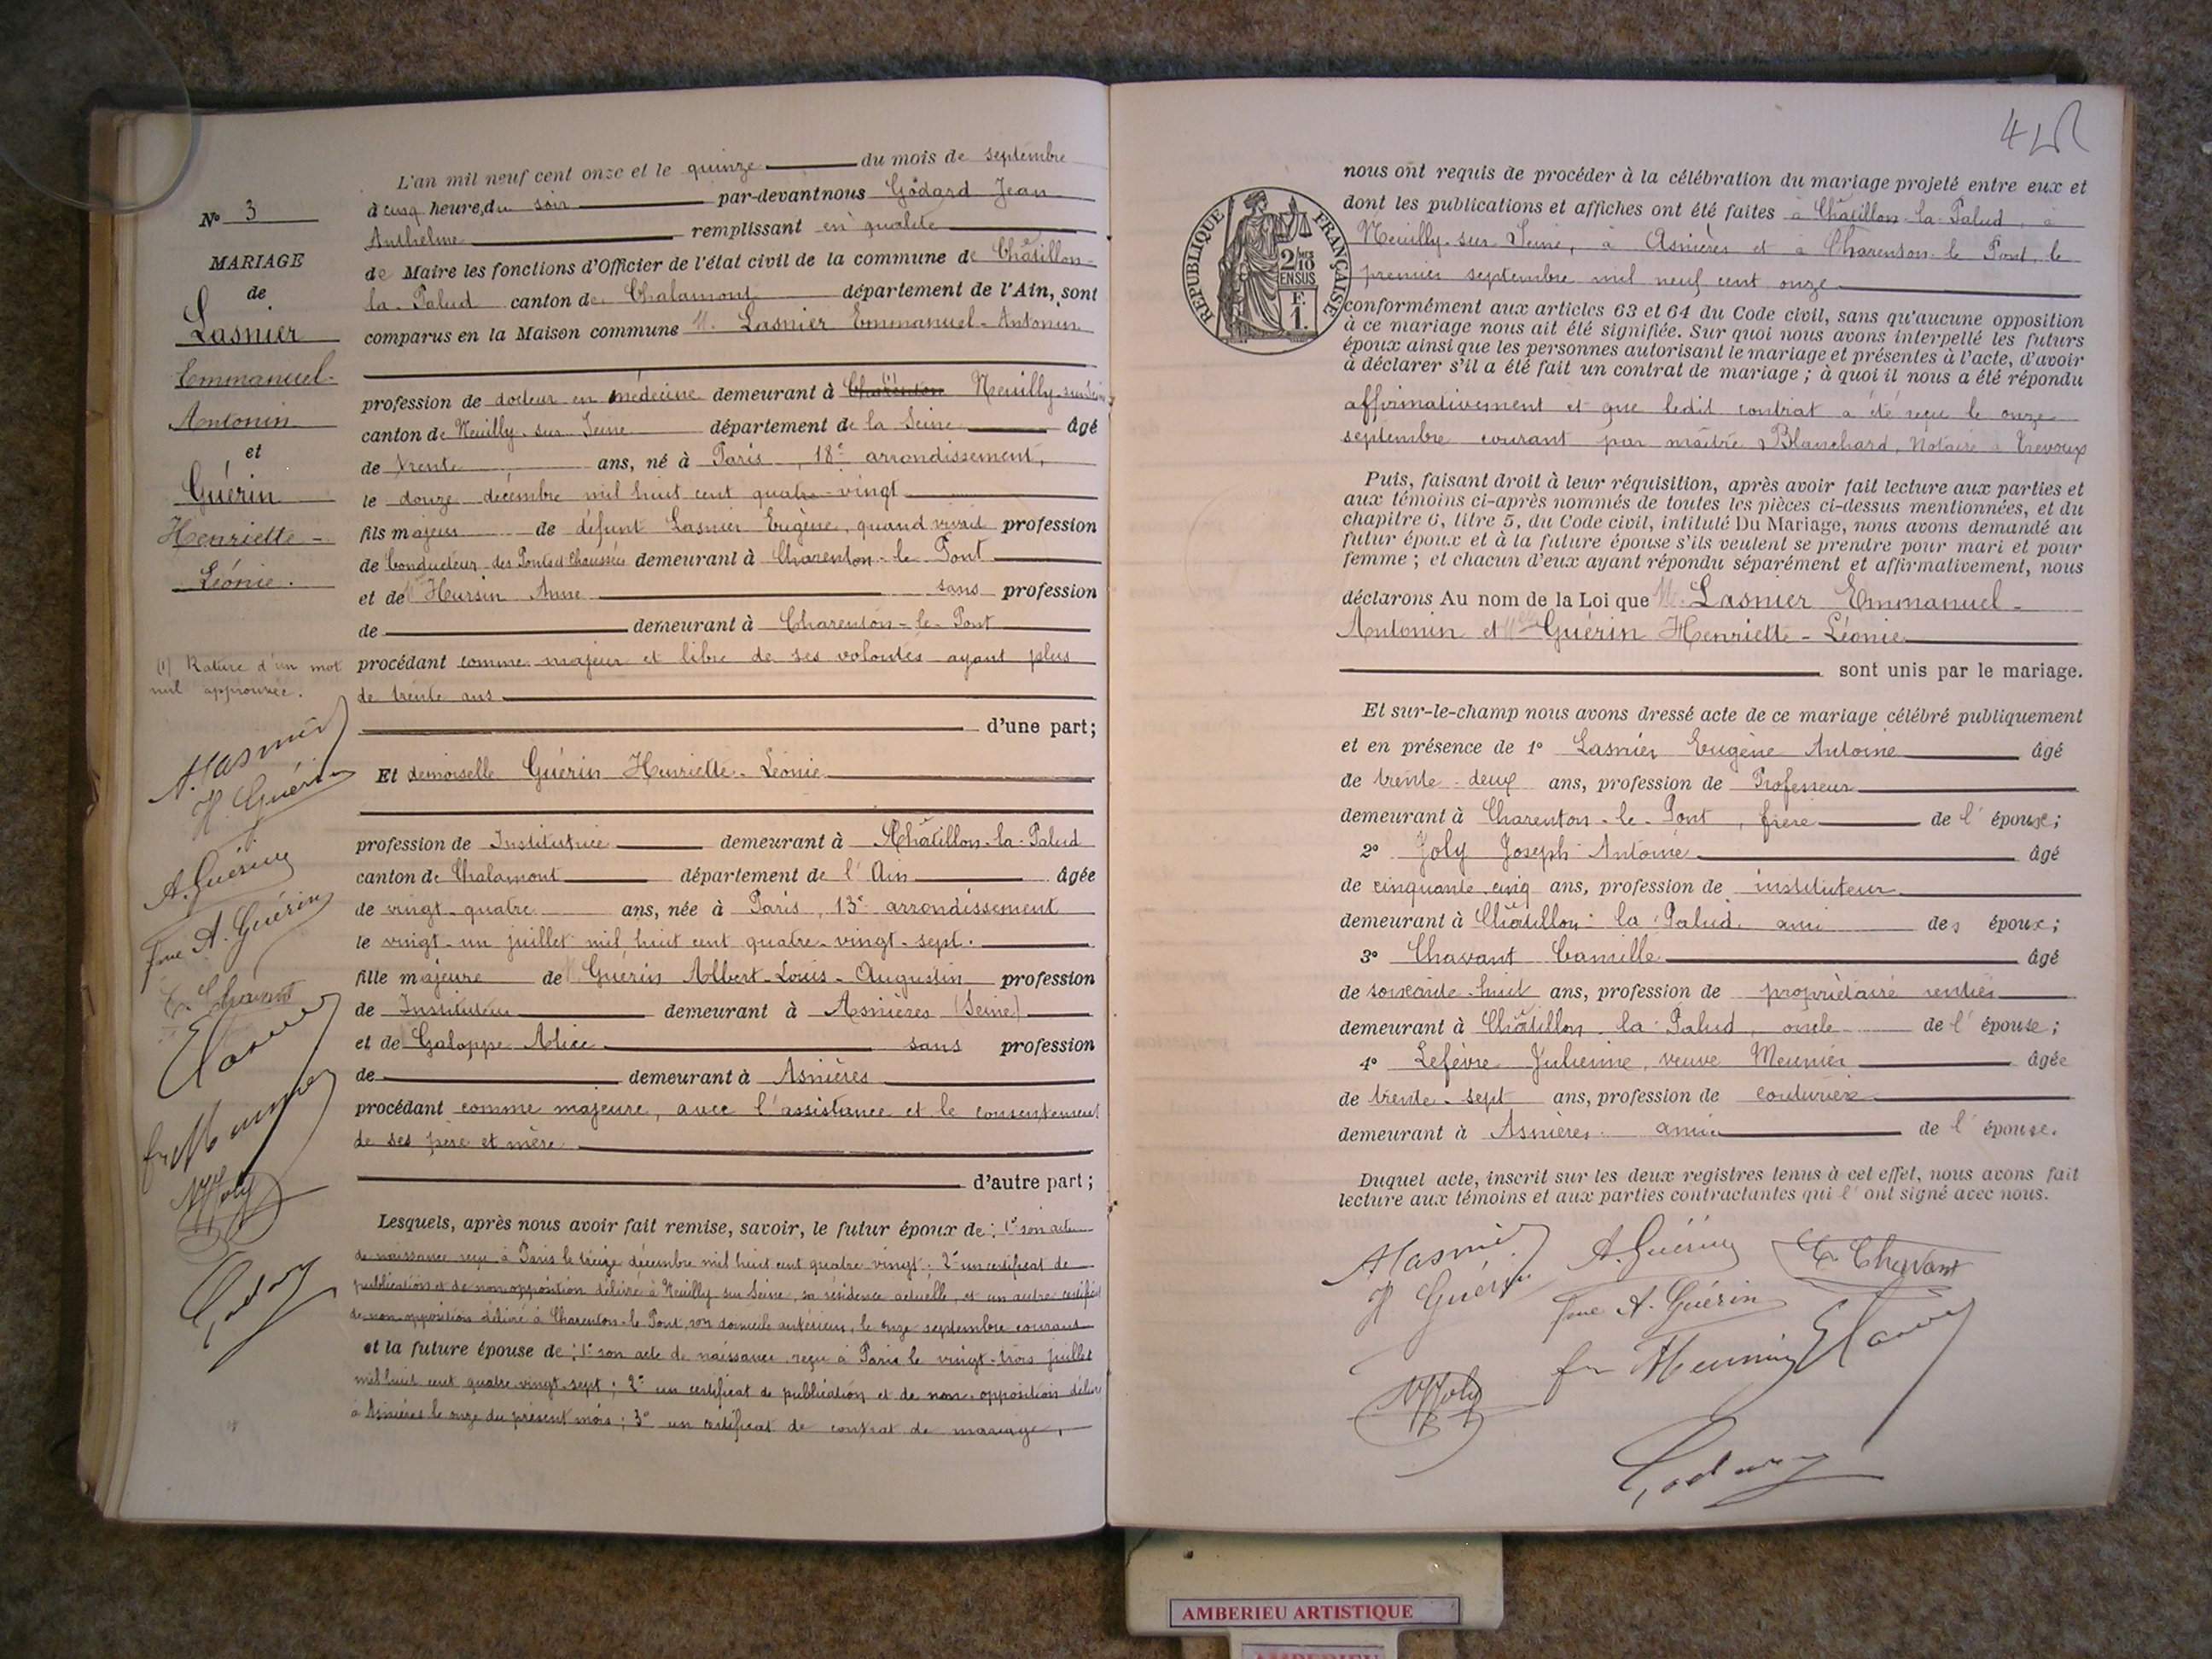 N° 3
MARIAGE
de
Lasnier
Emmanuel-
Antonin
et
Guérin
Henriette-
Léonie.
(1) Rature d'un mot
nul approuvée.
A. Lasnier
H. Guérin
A. Guérin
fme A. Guérin
C. Chavant
Joly
Godard
L'an mil neuf cent onze et le quinze du mois de septembre
à cinq heures du soir par-devant nous Godard Jean
Anthelme remplissant en qualité
de Maire les fonctions d'Officier de l'état civil de la commune de Châtillon-
la-Palud canton de Chalamont département de l'Ain, sont
comparus en la Maison commune M. Lasnier Emmanuel-Antonin
profession de docteur en médecine demeurant à Charenton (1) Neuilly-sur-Seine
canton de Neuilly-sur-Seine département de la Seine âgé
de trente ans, né à Paris, 18e arrondissement,
le douze décembre mil huit cent quatre-vingt
fils majeur de défunt Lasnier Eugène, quand vivait profession
de Conducteur des Ponts et Chaussées demeurant à Charenton-le-Pont
et de Hursin Anne sans profession
de demeurant à Charenton-le-Pont
procédant comme majeur et libre de ses volontés ayant plus
de trente ans
d'une part;
Et demoiselle Guérin Henriette-Léonie
profession de Institutrice demeurant à Châtillon-la-Palud
canton de Chalamont département de l'Ain âgée
de vingt-quatre ans, née à Paris, 13e arrondissement
le vingt-un juillet mil huit cent quatre-vingt-sept.
fille majeure de Guérin Albert-Louis-Augustin profession
de Instituteur demeurant à Asnières (Seine)
et de Galoppe Alice sans profession
de demeurant à Asnières
procédant comme majeure, avec l'assistance et le consentement
de ses père et mère
d'autre part;
Lesquels, après nous avoir fait remise, savoir, le futur époux de : 1° son acte
de naissance reçu à Paris le treize décembre mil huit cent quatre vingt ; 2° un certificat de
publication et de non opposition délivré à Neuilly sur Seine, sa résidence actuelle, et un autre certificat
de non opposition délivré à Charenton-le-Pont, son domicile antérieur, le onze septembre courant
et la future épouse de : 1° son acte de naissance reçu à Paris le vingt-trois juillet
mil huit cent quatre vingt sept ; 2° un certificat de publication et de non-opposition délivré
à Asnières le onze du présent mois ; 3° un certificat de contrat de mariage,
RÉPUBLIQUE FRANÇAISE
2/10 MES
EN SUS
F.
1.
nous ont requis de procéder à la célébration du mariage projeté entre eux et
dont les publications et affiches ont été faites à Châtillon-la-Palud, à
Neuilly-sur-Seine, à Asnières et à Charenton-le-Pont, le
premier septembre mil neuf cent onze
conformément aux articles 63 et 64 du Code civil, sans qu'aucune opposition
à ce mariage nous ait été signifiée. Sur quoi nous avons interpellé les futurs
époux ainsi que les personnes autorisant le mariage et présentes à l'acte, d'avoir
à déclarer s'il a été fait un contrat de mariage ; à quoi il nous a été répondu
affirmativement et que ledit contrat a été reçu le onze
septembre courant par maître Blanchard, Notaire à Trévoux
Puis, faisant droit à leur réquisition, après avoir fait lecture aux parties et
aux témoins ci-après nommés de toutes les pièces ci-dessus mentionnées, et du
chapitre 6, titre 5, du Code civil, intitulé Du Mariage, nous avons demandé au
futur époux et à la future épouse s'ils veulent se prendre pour mari et pour
femme ; et chacun d'eux ayant répondu séparément et affirmativement, nous
déclarons Au nom de la Loi que M. Lasnier Emmanuel-
Antonin et Mlle Guérin Henriette-Léonie
sont unis par le mariage.
Et sur-le-champ nous avons dressé acte de ce mariage célébré publiquement
et en présence de 1° Lasnier Eugène Antoine âgé
de trente-deux ans, profession de Professeur
demeurant à Charenton-le-Pont, frère de l'épouse;
2° Joly Joseph-Antoine âgé
de cinquante cinq ans, profession de instituteur
demeurant à Châtillon-la-Palud ami des époux;
3° Chavant Camille âgé
de soixante-huit ans, profession de propriétaire rentier
demeurant à Châtillon-la-Palud, oncle de l'épouse;
4° Lefèvre Julienne, veuve Meunier âgée
de trente-sept ans, profession de couturière
demeurant à Asnières amie de l'épouse.
Duquel acte, inscrit sur les deux registres tenus à cet effet, nous avons fait
lecture aux témoins et aux parties contractantes qui l'ont signé avec nous.
A. Lasnier A. Guérin C. Chavant
H Guérin fme A. Guérin
Meunier
Joly
Godard
AMBERIEU ARTISTIQUE
AMBERIEU